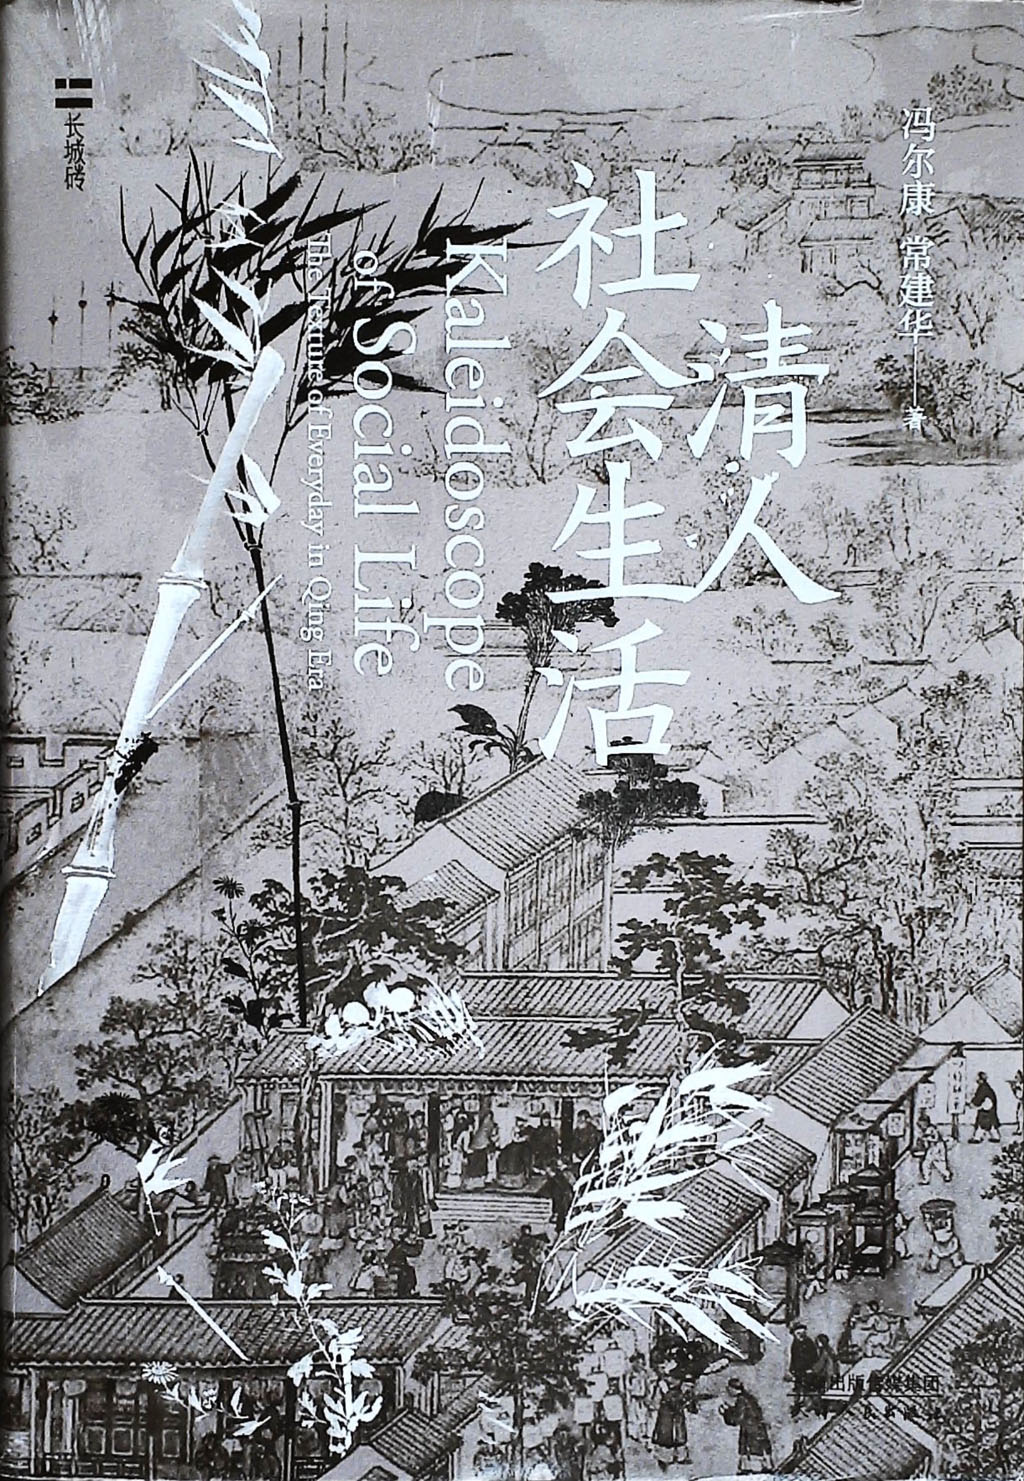 冯尔康 常建华——著
清人
社会生活
Kaleidoscope
of Social Life
The Texture of Everyday in Qing Era
长城砖
出版传媒集团